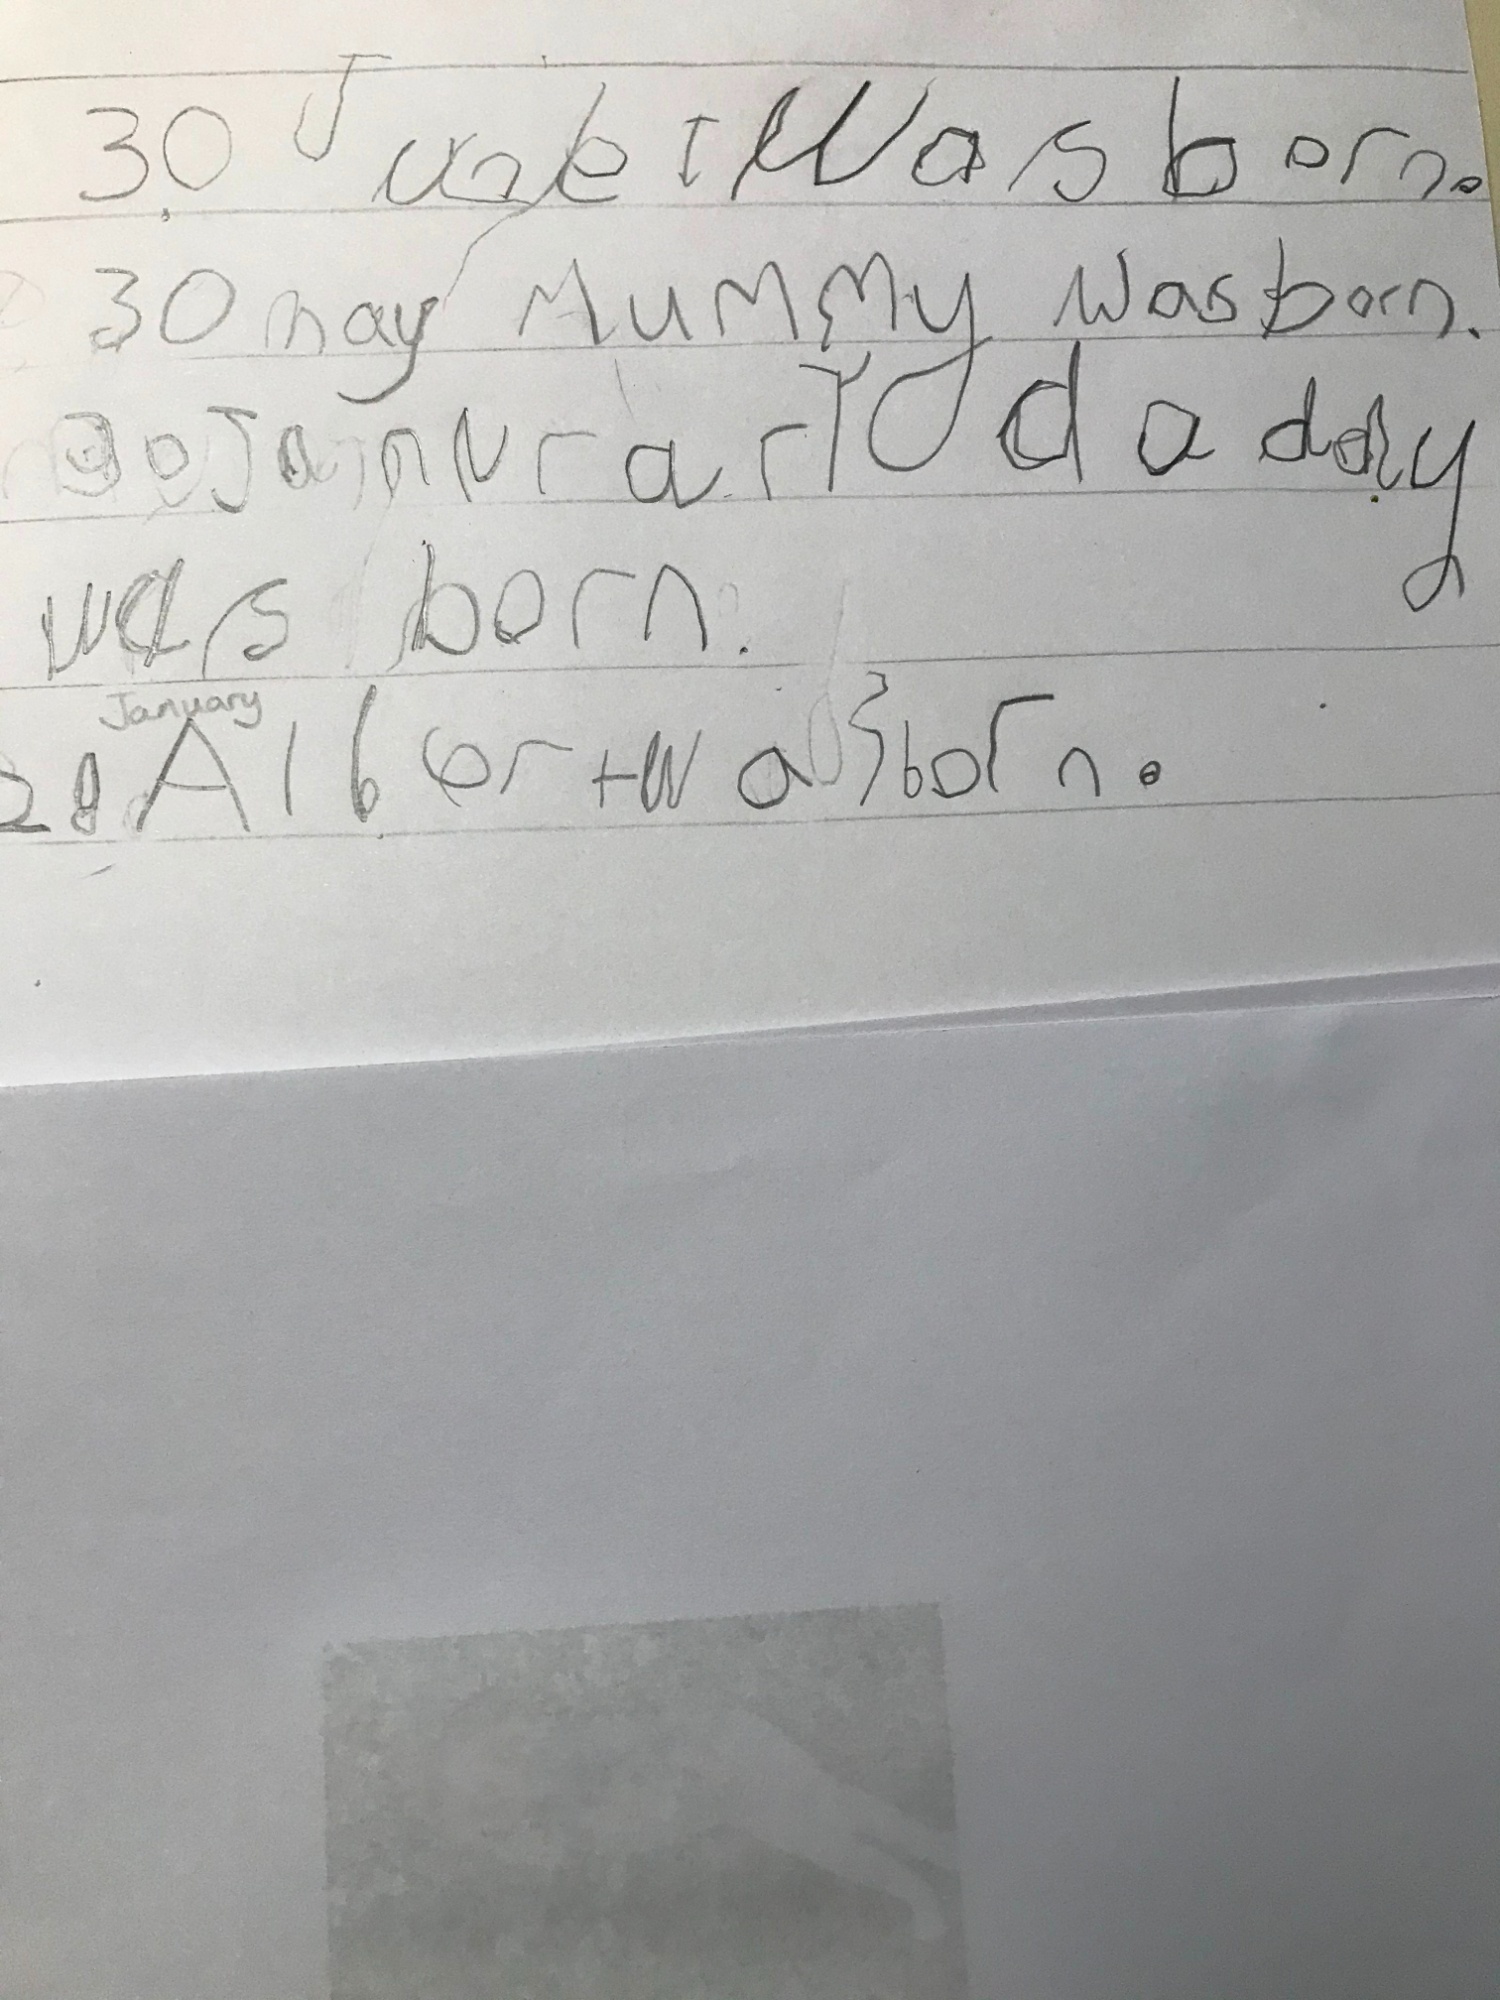 30 June I Was born.
30 may Mummy Was born.
30 Janurary daddy
was born.
January
28 Albert was born.